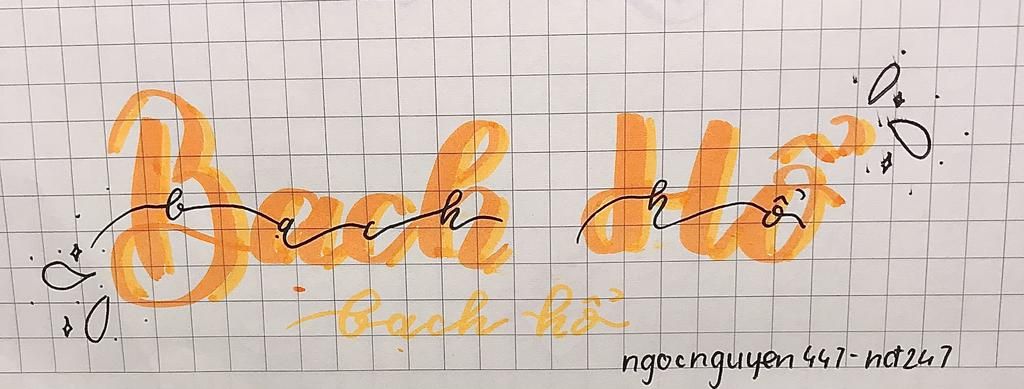 Bạch Hổ
bạch hổ
bạch hổ
ngocnguyen447-nct247